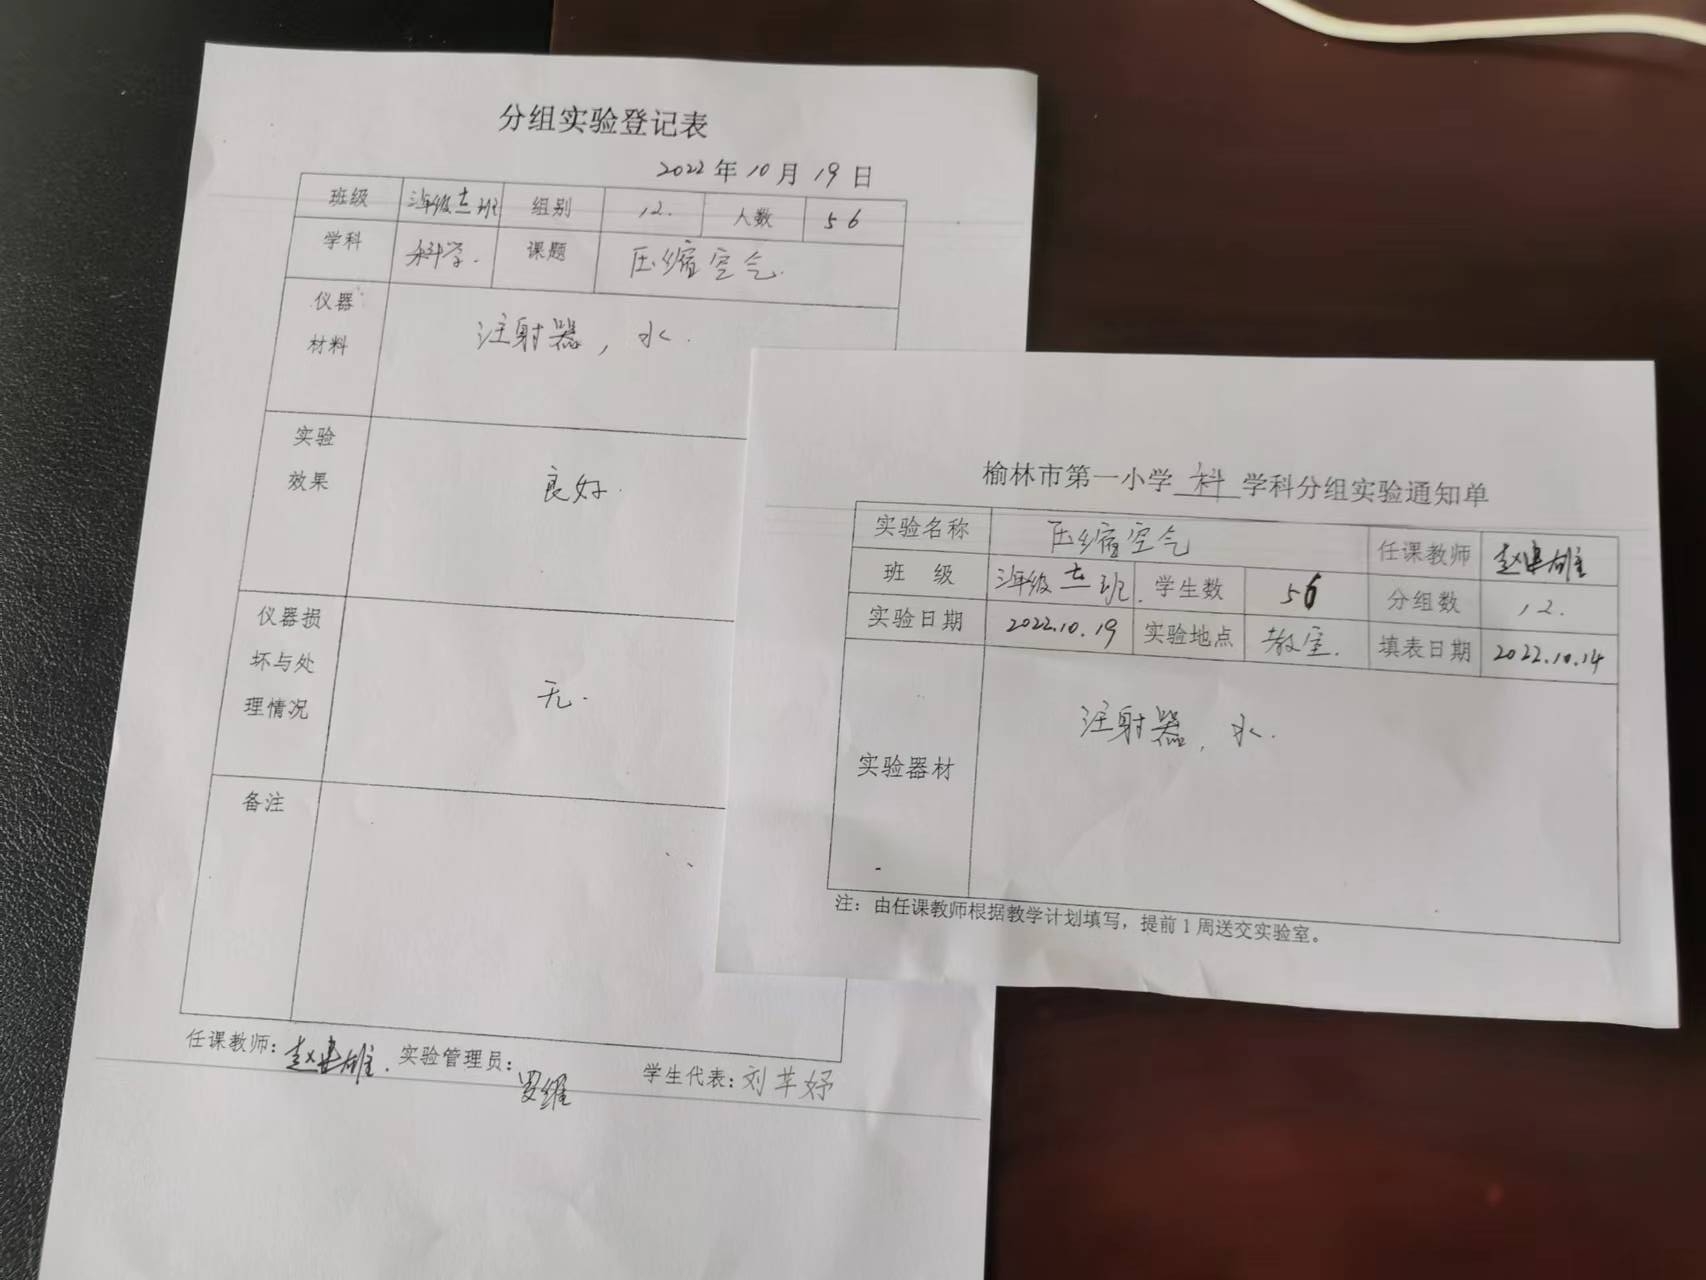 分组实验登记表
2022年10月19日
班级 三年级七班 组别 12. 人数 56
学科 科学. 课题 压缩空气.
仪器
材料
注射器，水.
实验
效果
良好.
仪器损
坏与处
理情况
无.
备注
任课教师：赵建雄. 实验管理员：罗维 学生代表：刘芊妤
榆林市第一小学 科 学科分组实验通知单
实验名称 压缩空气 任课教师 赵建雄
班 级 三年级七班. 学生数 56 分组数 12.
实验日期 2022.10.19 实验地点 教室. 填表日期 2022.10.14
实验器材 注射器，水.
注：由任课教师根据教学计划填写，提前1周送交实验室。